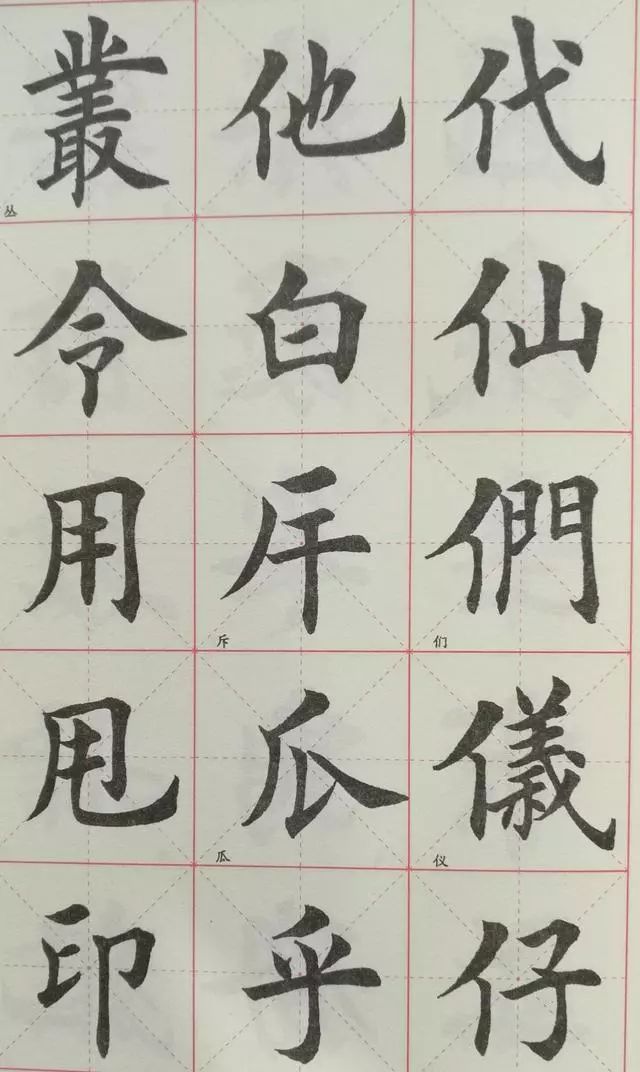 代
仙
們
们
儀
仪
仔
他
白
斥
斥
瓜
瓜
乎
叢
丛
令
用
甩
印